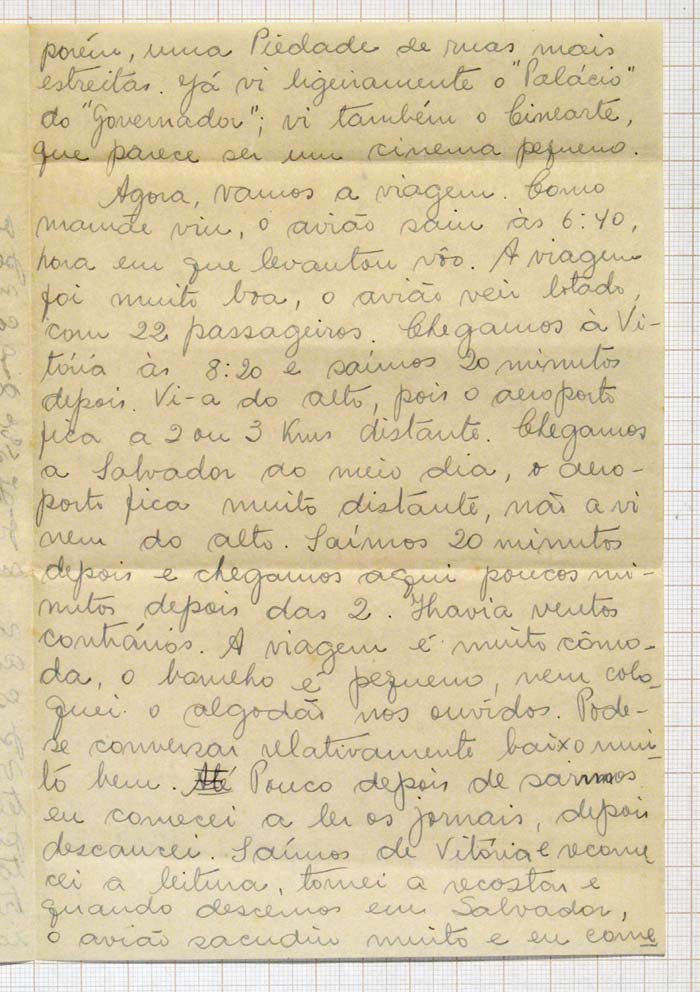 porém, uma Piedade de ruas mais
estreitas. Já vi ligeiramente o "Palácio"
do "Governador"; vi também o Cinearte,
que parece ser um cinema pequeno.
Agora, vamos a viagem. Como
mamãe viu, o avião saiu às 6:40,
hora em que levantou vôo. A viagem
foi muito boa, o avião veiu lotado,
com 22 passageiros. Chegamos à Vi-
tória às 8:20 e saímos 20 minutos
depois. Vi-a do alto, pois o aeroporto
fica a 2 ou 3 Kms distante. Chegamos
a Salvador ao meio dia, o aero-
porto fica muito distante, não a vi
nem do alto. Saímos 20 minutos
depois e chegamos aqui poucos mi-
nutos depois das 2. Havia ventos
contrários. A viagem é muito cômo-
da, o barulho é pequeno, nem colo-
quei o algodão nos ouvidos. Pode-
se conversar relativamente baixo mui-
to bem. Até Pouco depois de sairmos
eu comecei a ler os jornais, depois
descancei. Saímos de Vitória e recome
cei a leitura, tornei a recostar e
quando descemos em Salvador,
o avião sacudiu muito e eu come